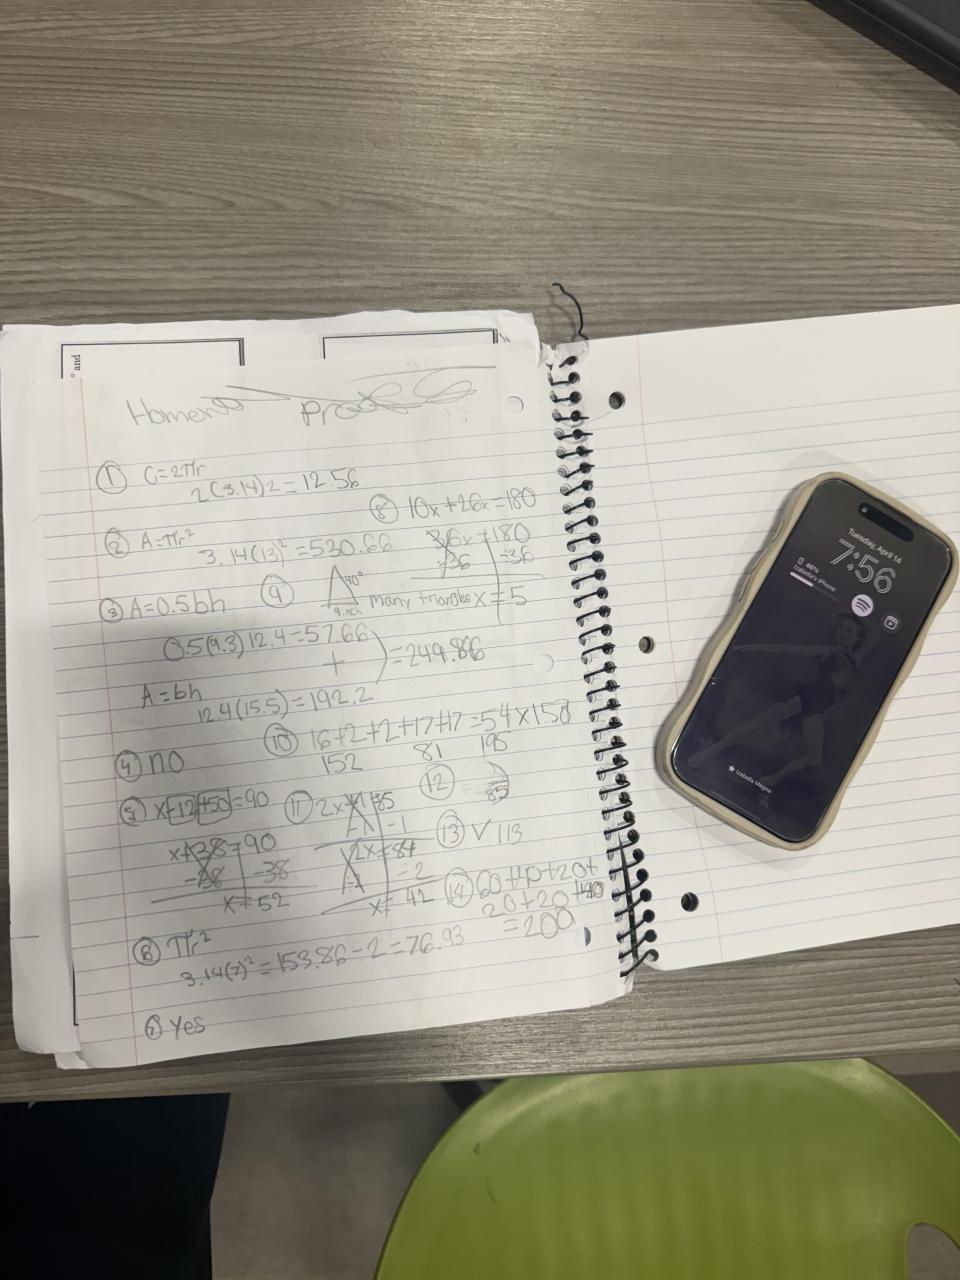 ° and
① C=2πr
2(3.14)2=12.56
② A=πr²
3.14(13)²=530.66
③ A=0.5bh
0.5(9.3)12.4=57.66
+
=249.86
A=bh
12.4(15.5)=192.2
④ no
⑤ x-12+50=90
x+38=90
-38 -38
x=52
⑥ πr²
3.14(7)²=153.86÷2=76.93
⑦ yes
⑧ 10x+26x=180
36x=180
÷36 ÷36
x=5
⑨ 40°
many triangles
⑩ 16+2+2+17+17=54x158
152 81 195
⑪ 2x+1 85
-1
2x=84
÷2 ÷2
x=42
⑫
85
⑬ V 113
⑭ 60+40+20+
20+20+40
=200
Tuesday, April 14
7:56
46%
Izabella's iPhone
Izabella Magne